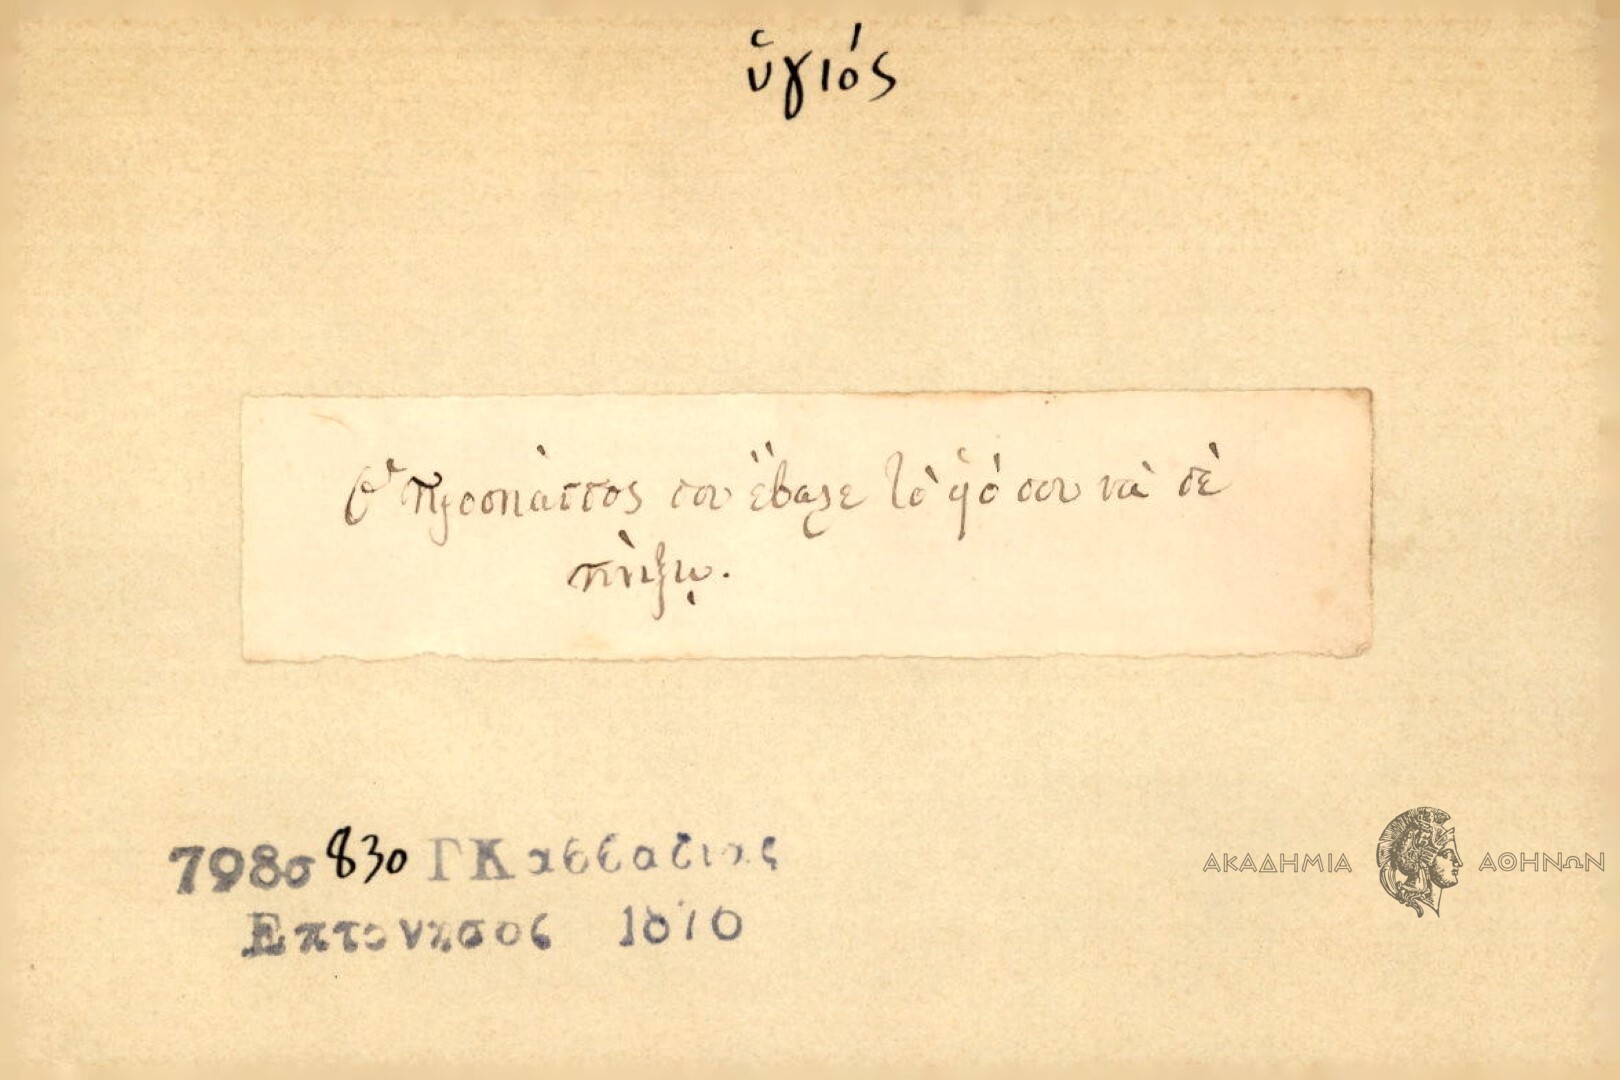 ὑγιός
Ὁ προσπάππος σου ἔβαλε τὸ ὑιό σου νὰ σὲ
πνίξῃ.
798σ 830 ΓΚαββαδιας
Επτανησος 1870
ΑΚΑΔΗΜΙΑ ΑΘΗΝΩΝ